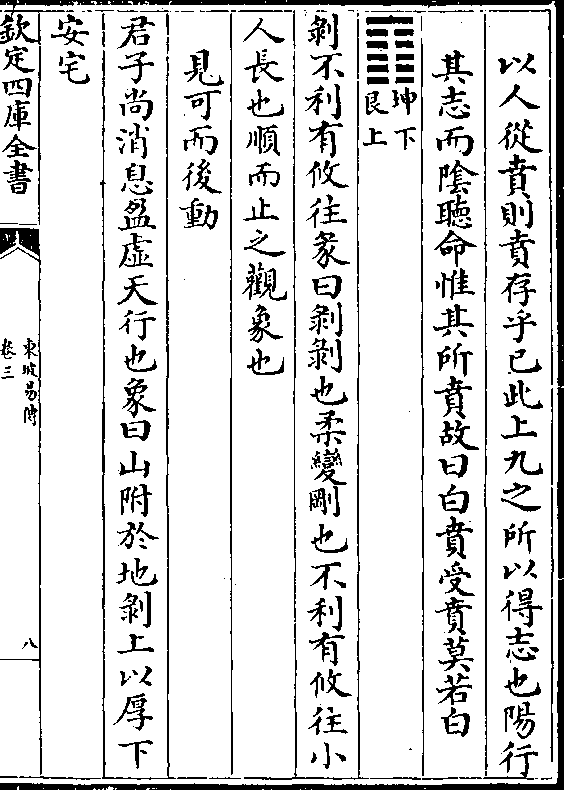 以人從賁則賁存乎已此上九之所以得志也陽行
其志而陰聽命惟其所賁故曰白賁受賁莫若白
坤下
艮上
剝不利有攸往彖曰剝剝也柔變剛也不利有攸往小
人長也順而止之觀象也
見可而後動
君子尚消息盈虛天行也象曰山附於地剝上以厚下
安宅
欽定四庫全書
東坡易傳
卷三
八